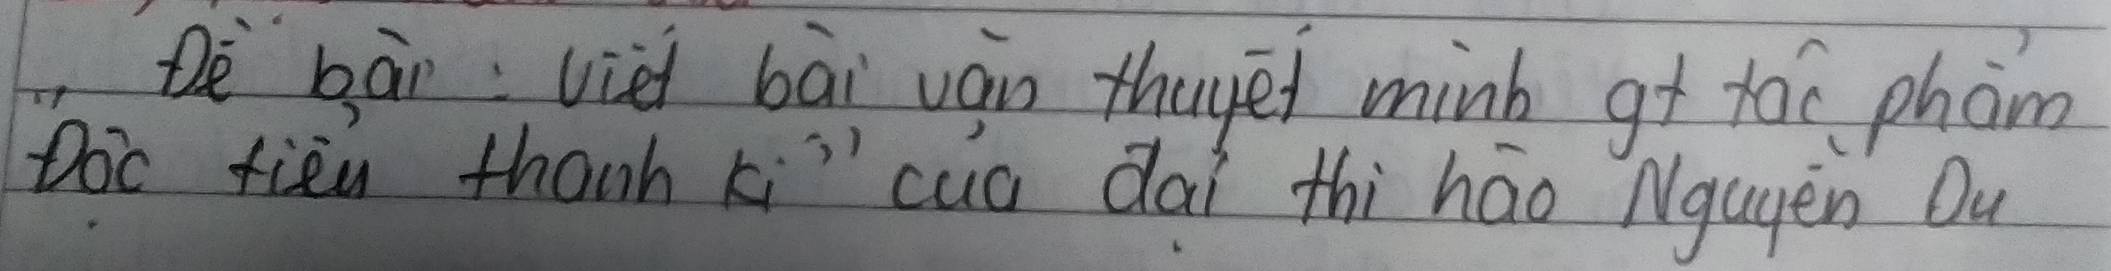 Đề bài : Viết bài văn thuyết minh gt tác phẩm
"Độc tiểu thanh kí" của đại thi hào Nguyễn Du